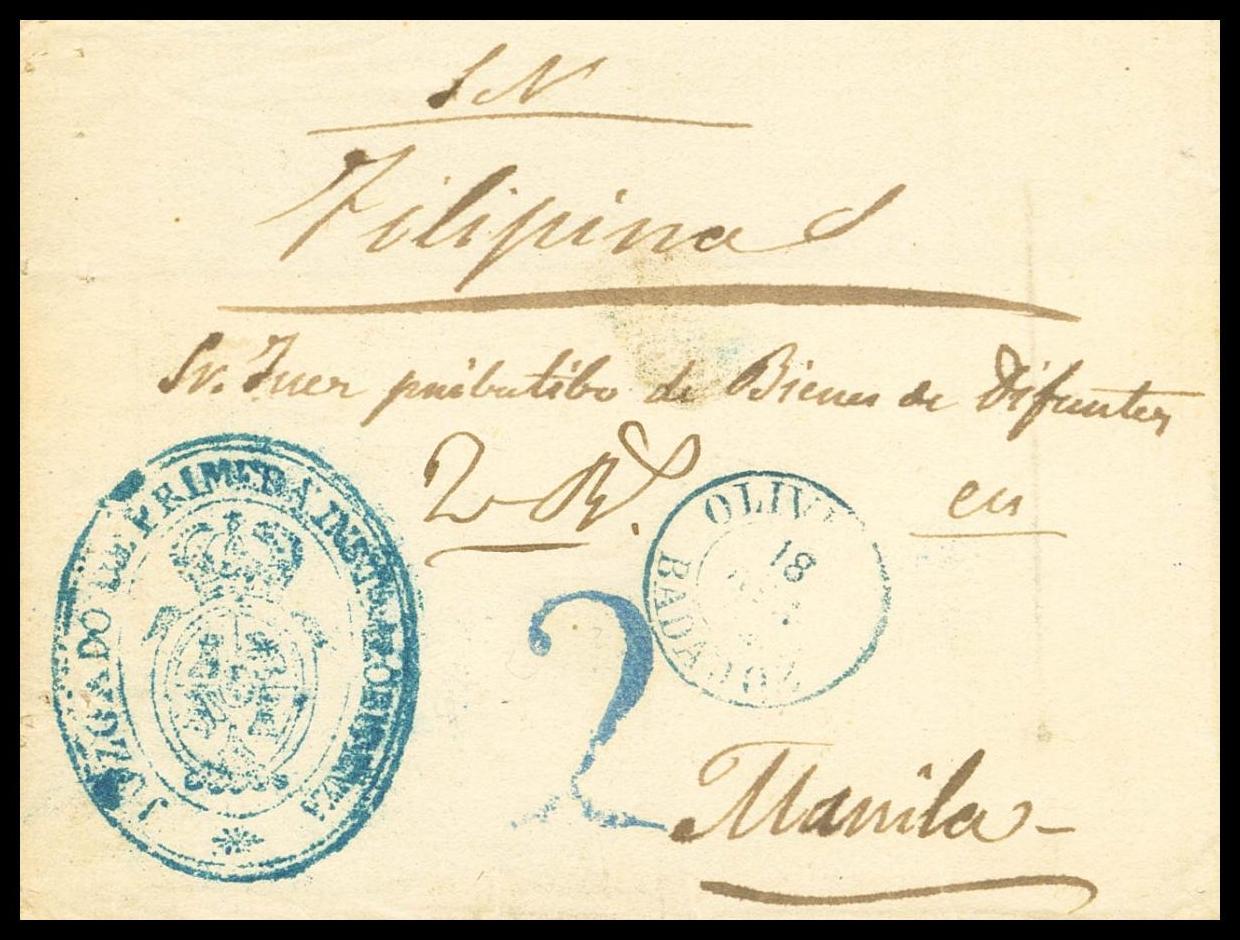 S N
Filipinas
Sr. Juez pribatibo de Bienes de Difuntos
2 Rs.
en
JUZGADO DE PRIMERA INSTA DE OLIVENZA
OLIVE
18
BADAJOZ
2
Manila